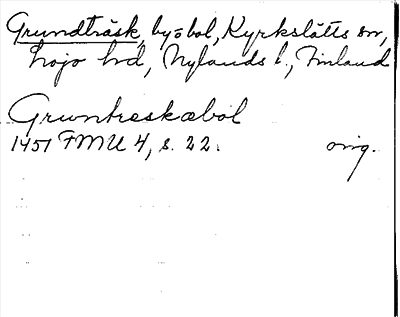 Grundträsk, by o bol, Kyrkslätts sn,
Lojo hd, Nylands l., Finland
Gruntreskæbol
1451 FMU 4, s. 22. orig.